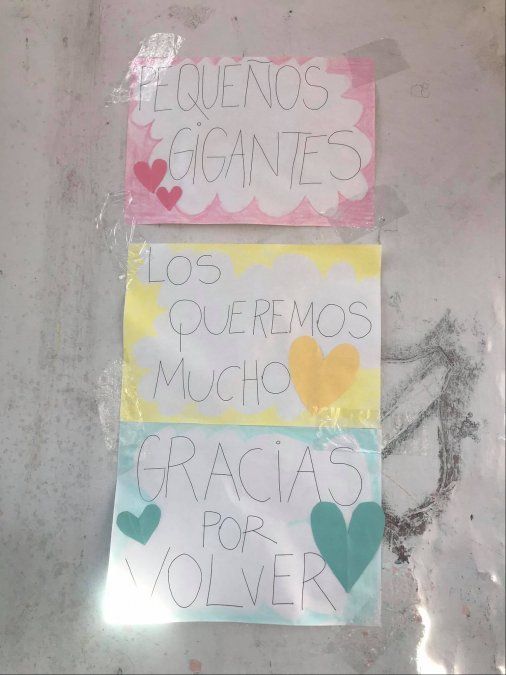 PEQUEÑOS
GiGANTES
LOS
QUEREMOS
MUCHO
GRACiAS
POR
VOLVER